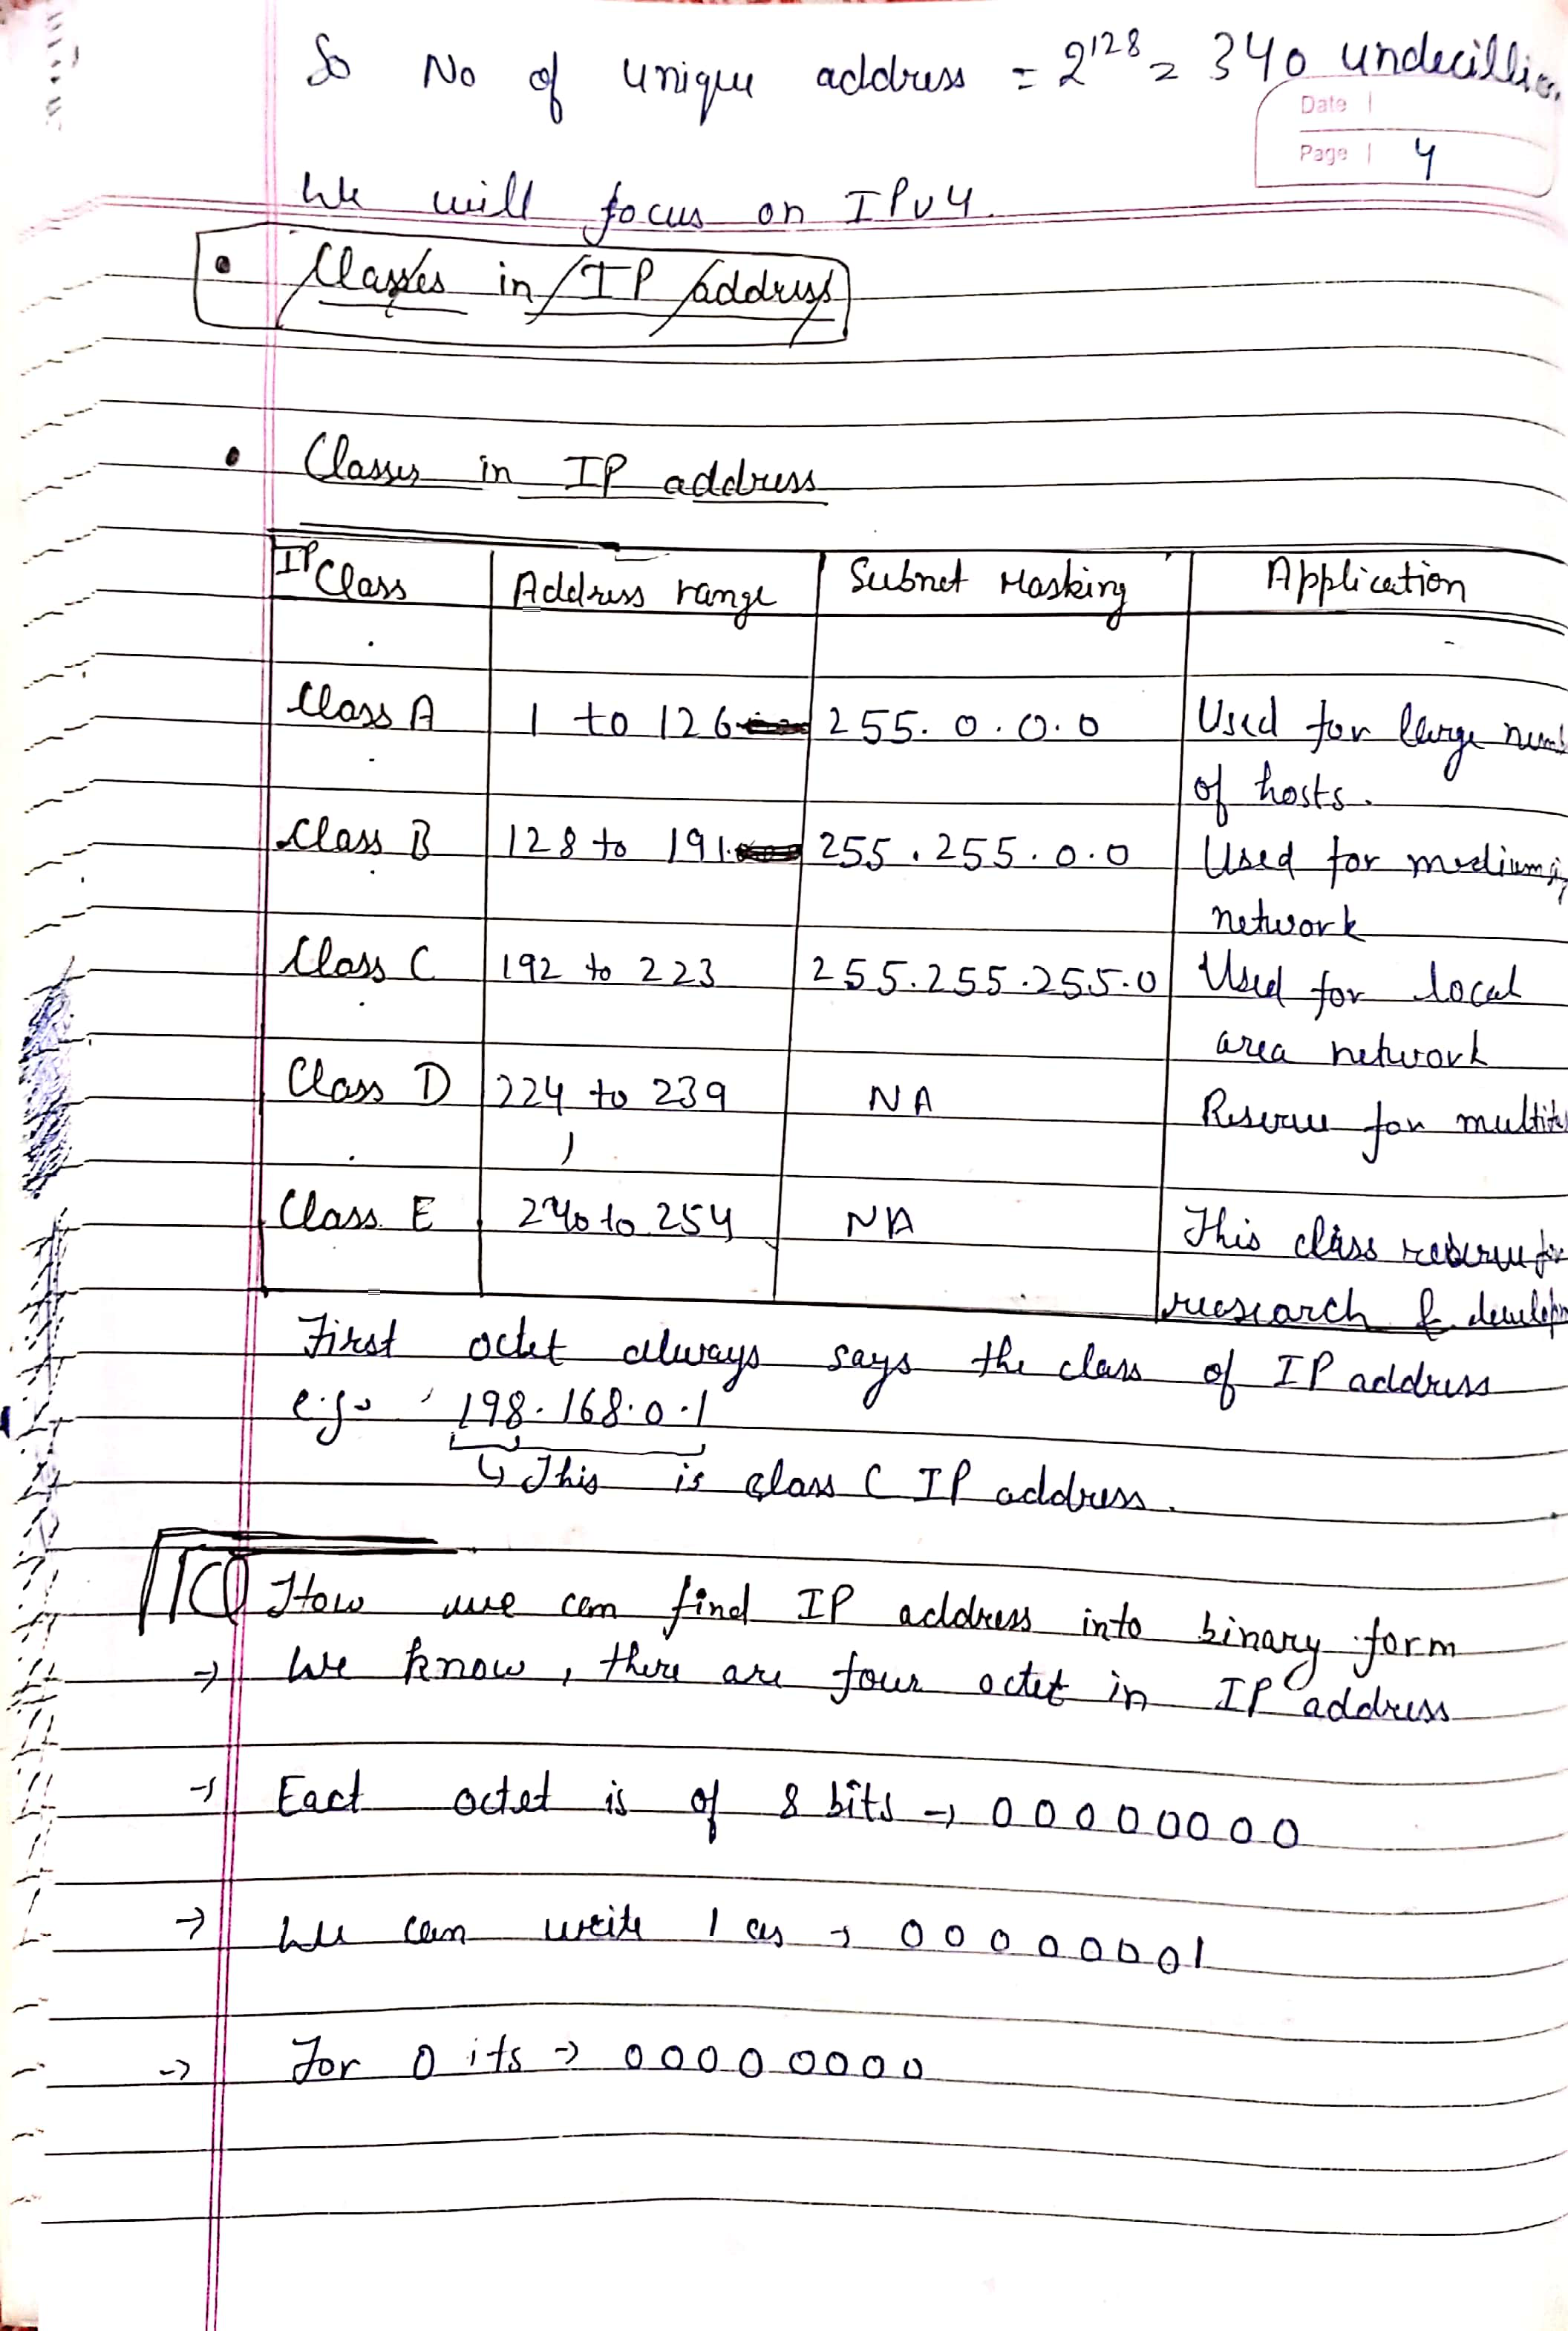 So No of unique address = 2^128 = 340 undecillion
Date
Page 4
We will focus on IPv4.
• Classes in IP address
• Classes in IP address
IP Class | Address range | Subnet Masking | Application
Class A | 1 to 126 | 255.0.0.0 | Used for large numb
of hosts.
Class B | 128 to 191 | 255.255.0.0 | Used for medium
network
Class C | 192 to 223 | 255.255.255.0 | Used for local
area network
Class D | 224 to 239 | NA | Reserve for
Class E | 240 to 254 | NA | This class reserve for
research & developm
First octet always says the class of IP address
e.g. 198.168.0.1
↳ This is class C IP address.
Q How we can find IP address into binary form
→ We know, there are four octet in IP address
→ Eact octet is of 8 bits → 00000000
→ We can write 1 as → 00000001
→ For 0 its → 00000000